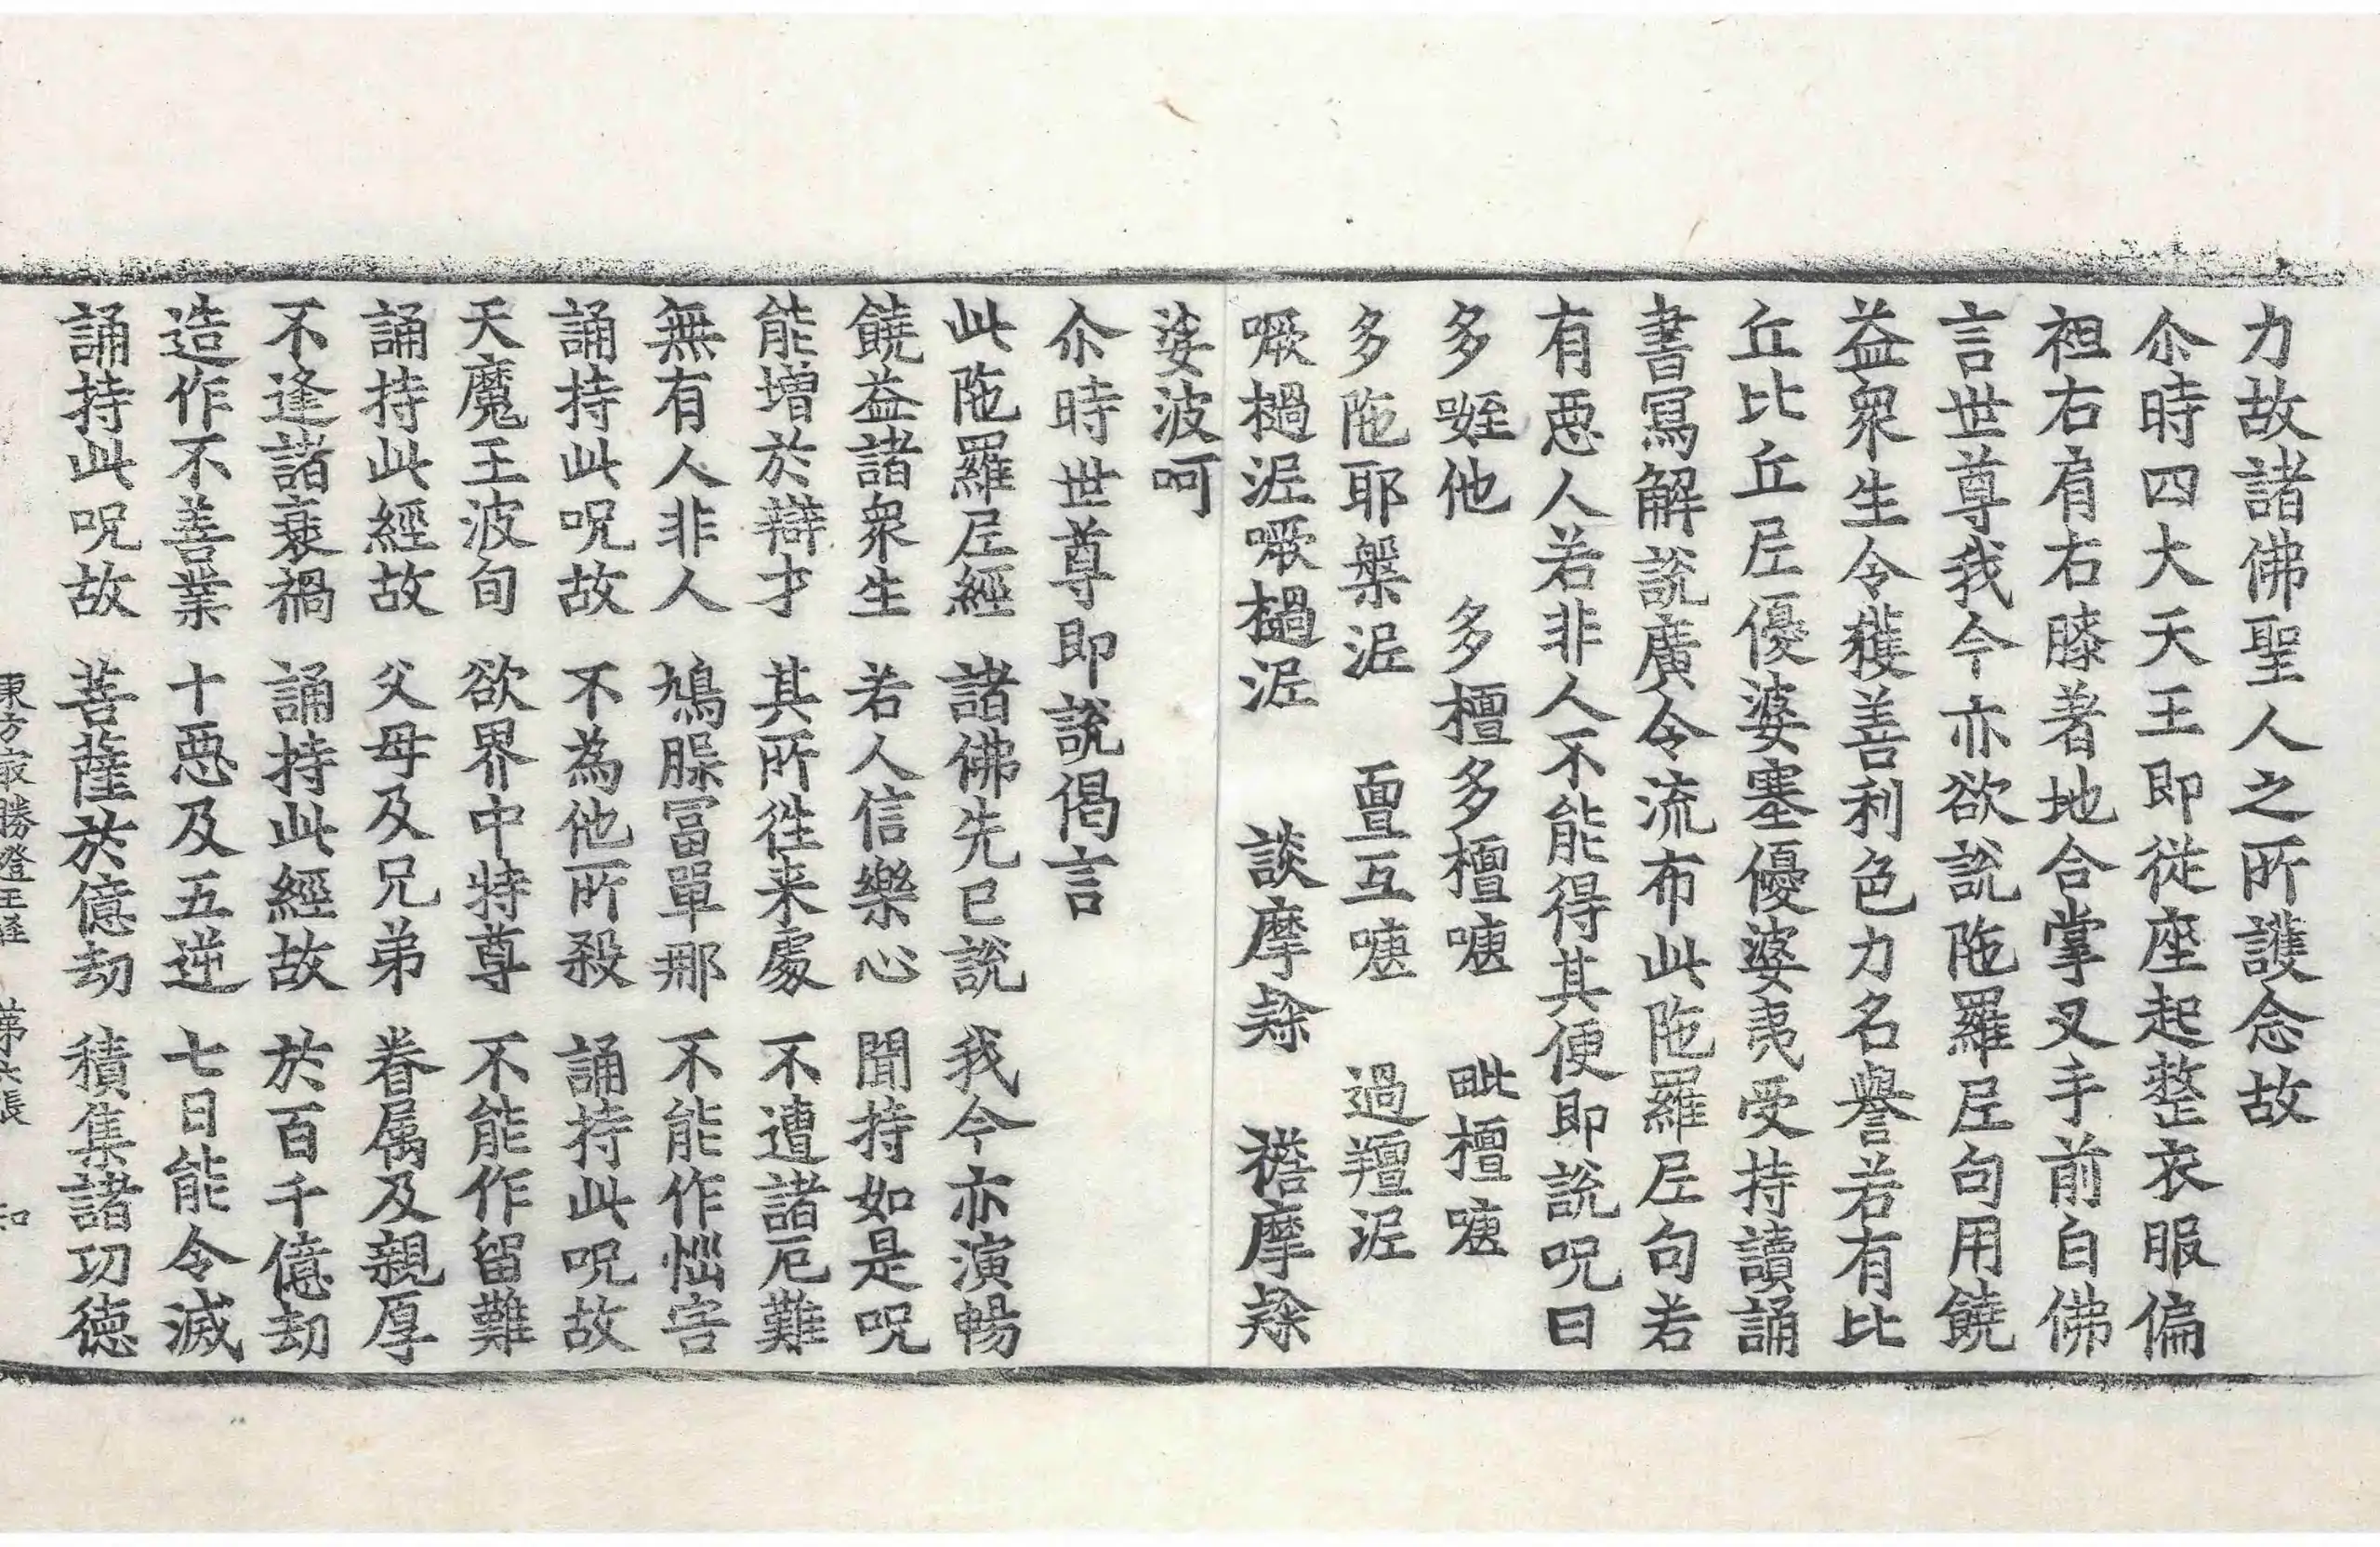 力故諸佛聖人之所護念故
尒時四大天王即從座起整衣服偏
袒右肩右膝著地合掌叉手前白佛
言世尊我今亦欲說陁羅𡰱句用饒
益衆生令獲善利色力名譽若有比
丘比丘𡰱優婆塞優婆夷受持讀誦
書寫解說廣令流布此陁羅𡰱句若
有惡人若非人不能得其便即說呪曰
多咥他　多檀多檀㗧　毗檀㗧
多陁耶槃泥　亶互㗧　過羶泥
噘㯼泥噘㯼泥　談摩㱔　襜摩㱔
娑波呵
尒時世尊即說偈言
此陁羅𡰱經　諸佛先已說　我今亦演暢
饒益諸衆生　若人信樂心　聞持如是呪
能增於辯才　其所徃来處　不遭諸厄難
無有人非人　鳩腂冨單那　不能作惱害
誦持此呪故　不為他所殺　誦持此呪故
天魔王波旬　欲界中特尊　不能作留難
誦持此經故　父母及兄弟　眷属及親厚
不逢諸衰禍　誦持此經故　於百千億劫
造作不善業　十惡及五逆　七日能令滅
誦持此呪故　菩薩於億劫　積集諸功德
東方最勝燈王經　第六張